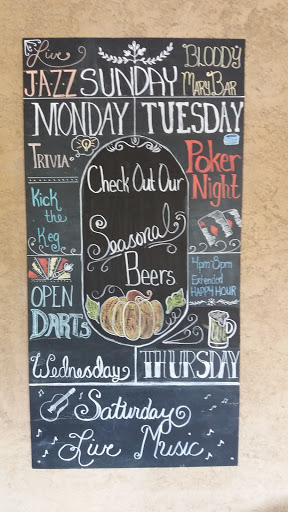 Live
JAZZ SUNDAY
BLOODY
MARY BAR
MONDAY TUESDAY
TRIVIA
Kick
the
Keg
OPEN
DARTS
Wednesday
Check Out Our
Seasonal
Beers
Poker
Night
4pm-8pm
Extended
HAPPY HOUR
THURSDAY
Saturday
Live Music